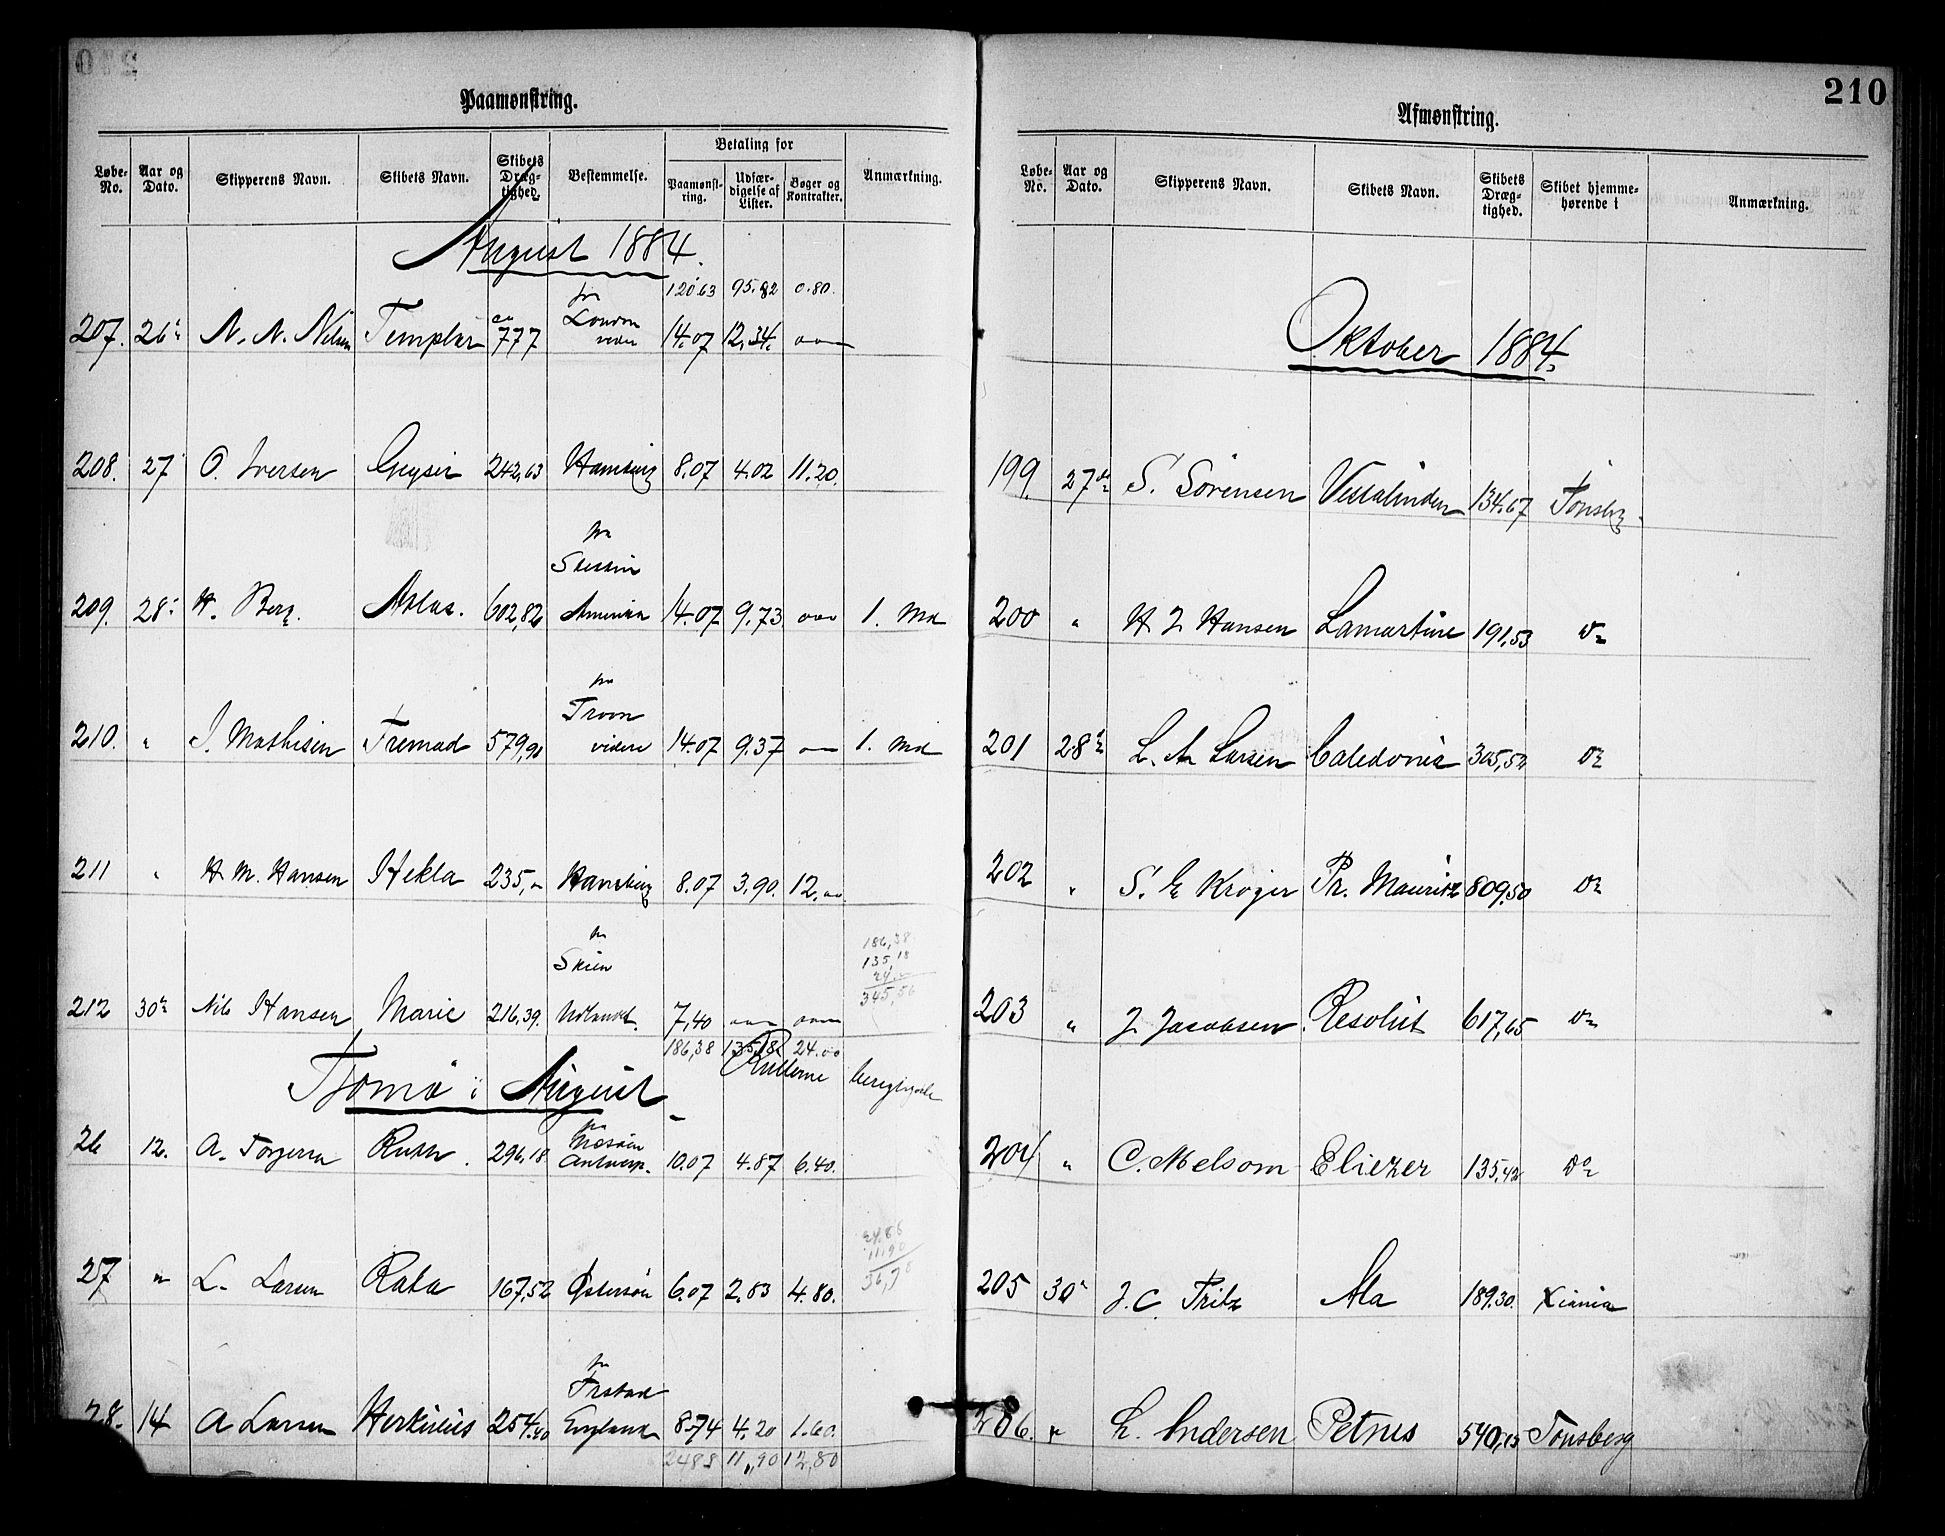 Paamønstring.
Løbe-No. Aar og Dato. Skipperens Navn. Skibets Navn. Skibets Dræg-tighed. Bestemmelse. Betaling for Paamønst-ring. Udfær-digelse af Lister. Bøger og Kontrakter. Anmærkning.
August 1884.
120.63 95.82 0.80.
fra
207. 26 N. N. Nilsen Templar 777 London videre 14.07 12.34.
208. 27 O. Iversen Geysir 242,63 Hamburg 8.07 4.02 11.20.
fra
Stettin
209. 28 H. Berg. Atlas. 602,82 Amerika 14.07 9.73 1. Md
fra
Troon
210. " J. Mathisen Fremad 579,90 videre 14.07 9.37 1. Md
211 " H. M. Hansen Hekla 235, Hamburg 8.07 3.90. 12.
fra
Skien
186,38
135,18
24,
345,56
212 30 Nils Hansen Marie 216,39. Udlandet. 7,40
186,38 135,18 24.00
Tjømø i August
26 12. A. Torgersen Ruth. 296,18. fra Antwerp. 10.07 4.87 6.40.
24.88
11.90
36,78
27 " L. Larsen Rata 167,52 Østersøen 6.07 2.83 4.80.
fra
Frstad
28. 14 A Larsen Herkules 254.40 England 8.74 4.20 1.60.
2488 11,90 12,80
210
Afmønstring.
Løbe-No. Aar og Dato. Skipperens Navn. Skibets Navn. Skibets Dræg-tighed. Skibet hjemme-hørende i Anmærkning.
Oktober 1884.
199. 27de S. Sörensen Vestalinden 134.67 Tönsbg
200 " H J Hansen Lamartine 191,53 Do
201 28 L. A Larsen Caledonia 305,52 Do
202 " S. E Kröger Pr. Mauritz 809.50 Do
203 " J Jacobsen Resolut 617,65 Do
204 " C. Melsom Eliezer 135,42 Do
205 30 J. C. Fritz Ala 189.30. Xiania
206. " L. Andersen Petrus 540,15 Tønsberg